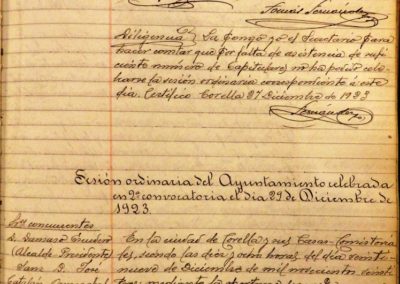 Tomás Fernández
Diligencia / La pongo yo el Secretario para
hacer constar que por falta de asistencia de sufi
ciente número de Capitulares, no ha podido cele
brarse la sesión ordinaria correspondiente á este
día. Certifico. Corella 27 Diciembre de 1923
Fernández
Sesión ordinaria del Ayuntamiento celebrada
en 2ª convocatoria el día 29 de Diciembre de
1923.
Sres concurrentes
D. Damaso
(Alcalde Presidente)
En la ciudad de Corella y sus Casas-Consistoria
les, siendo las diez y ocho horas del día veinti
nueve de Diciembre de mil novecientos veinti